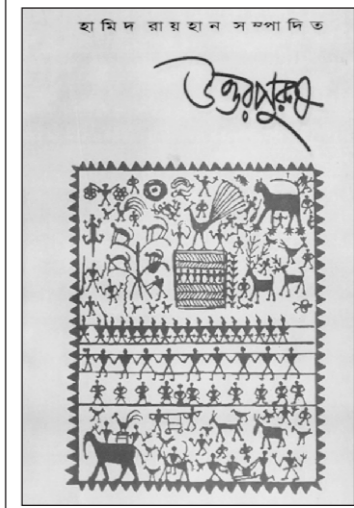 হামিদ রায়হান সম্পাদিত
উত্তরপুরুষ